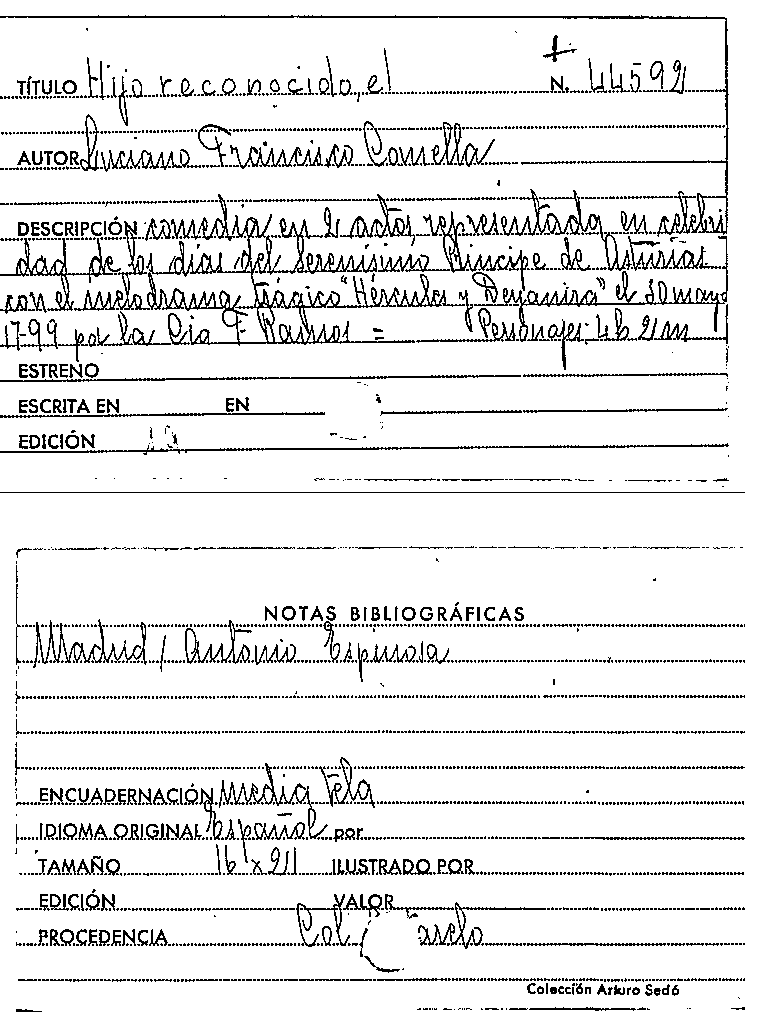 TÍTULO Hijo reconocido, el N. 44592
AUTOR Luciano Francisco Comella
DESCRIPCIÓN comedia en 2 actos representada en celebri
dad de los días del Serenísimo Príncipe de Asturias
con el melodrama trágico "Hércules y Deyanira" el 30 mayo
1799 por la Cia F. Ramos = Personajes: 4h 2m
ESTRENO
ESCRITA EN EN
EDICIÓN
NOTAS BIBLIOGRÁFICAS
Madrid / Antonio Espinosa
ENCUADERNACIÓN Media Tela
IDIOMA ORIGINAL Español por
TAMAÑO ILUSTRADO POR
EDICIÓN VALOR
PROCEDENCIA Col.
Colección Arturo Sedó